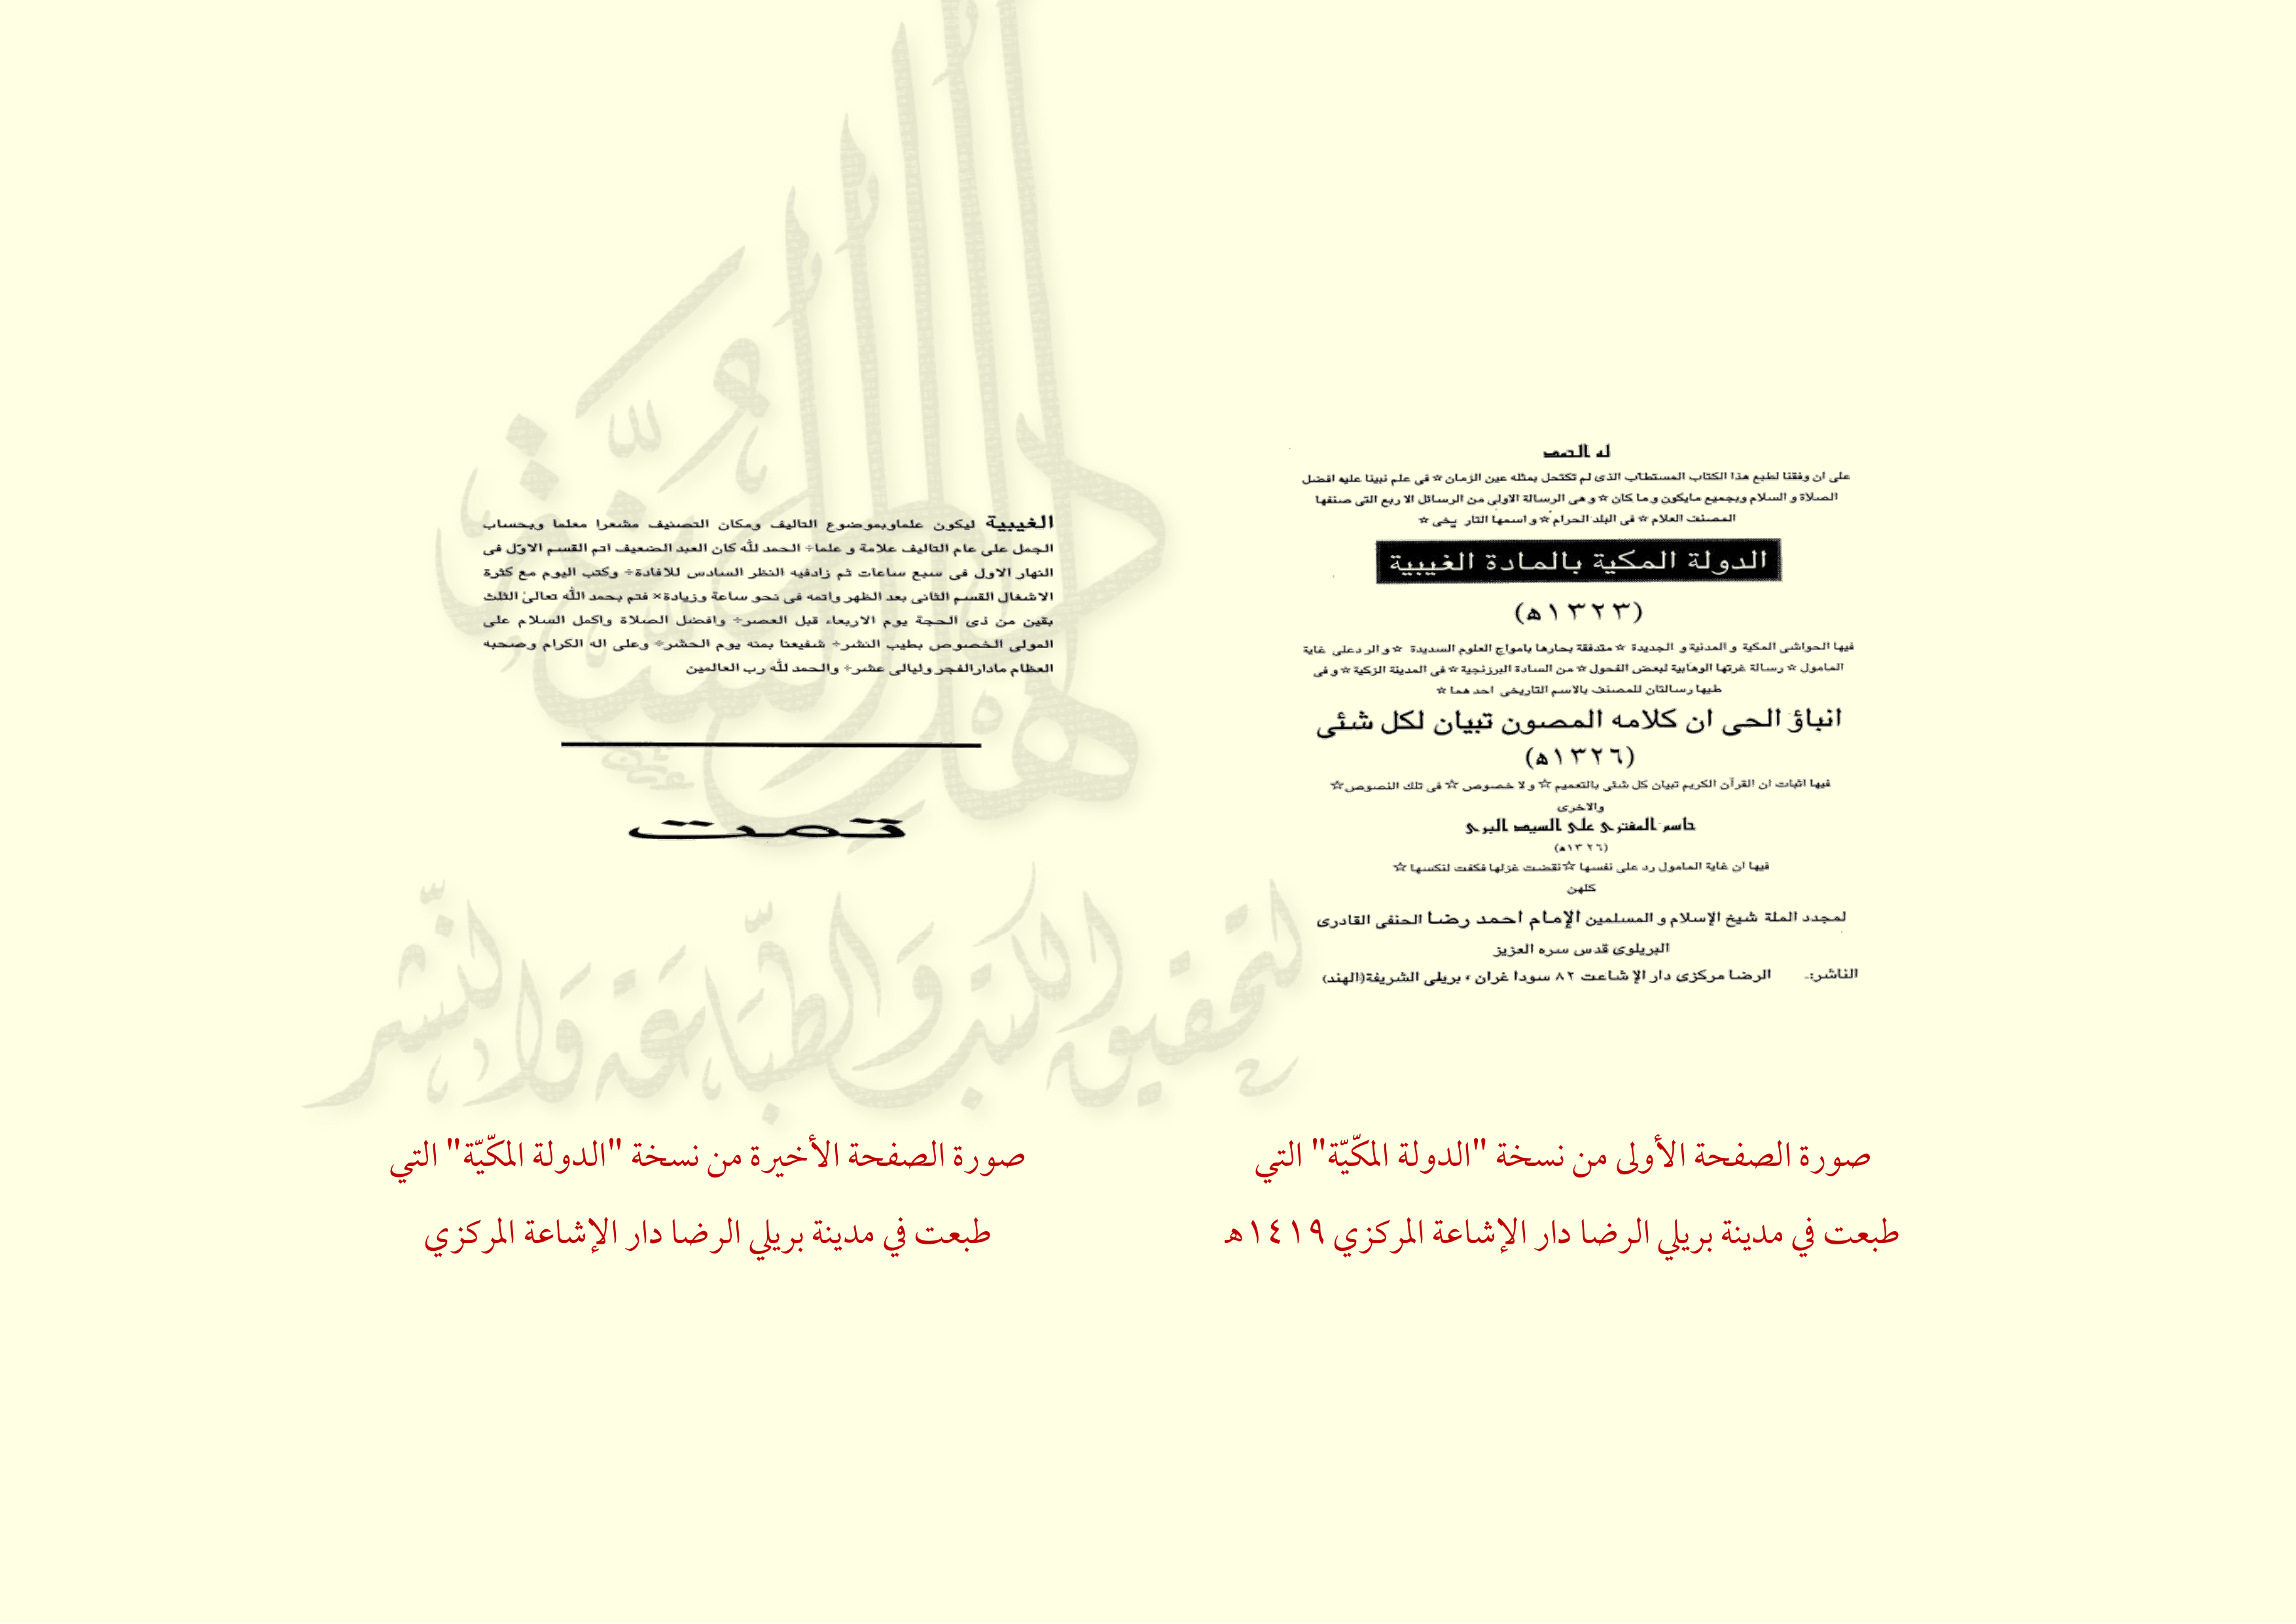 له الحمد
على ان وفقنا لطبع هذا الكتاب المستطاب الذى لم تكتحل بمثله عين الزمان ☆ فى علم نبينا عليه افضل
الصلاة و السلام وبجميع مايكون و ما كان ☆ و هى الرسالة الاولى من الرسائل الا ربع التى صنفها
المصنف العلام ☆ فى البلد الحرام ☆ و اسمها التار يخى ☆
الدولة المكية بالمادة الغيبية
(١٣٢٣ه)
فيها الحواشى المكية و المدنية و الجديدة ☆ متدفقة بحارها بامواج العلوم السديدة ☆ و الر دعلى غاية
المامول ☆ رسالة غرتها الوهابية لبعض الفحول ☆ من السادة البرزنجية ☆ فى المدينة الزكية ☆ و فى
طيها رسالتان للمصنف بالاسم التاريخى احد هما ☆
انباؤ الحى ان كلامه المصون تبيان لكل شئى
(١٣٢٦ه)
فيها اثبات ان القرآن الكريم تبيان كل شئى بالتعميم ☆ و لا خصوص ☆ فى تلك النصوص ☆
والاخرى
حاسم المفترى على السيد البرى
(١٣٢٦ه)
فيها ان غاية المامول رد على نفسها ☆ نقضت غزلها فكفت لنكسها ☆
كلهن
لمجدد الملة شيخ الإسلام و المسلمين الإمام احمد رضا الحنفى القادرى
البريلوى قدس سره العزيز
الناشر:۔ الرضا مركزى دار الإ شاعت ٨٢ سودا غران ، بريلى الشريفة(الهند)
صورة الصفحة الأولى من نسخة "الدولة المكّيّة" التي
طبعت في مدينة بريلي الرضا دار الإشاعة المركزي ١٤١٩ه
الغيبية ليكون علماوبموضوع التاليف ومكان التصنيف مشعرا معلما وبحساب
الجمل على عام التاليف علامة و علما÷ الحمد لله كان العبد الضعيف اتم القسم الاوّل فى
النهار الاول فى سبع ساعات ثم زادفيه النظر السادس للافادة÷ وكتب اليوم مع كثرة
الاشغال القسم الثانى بعد الظهر واتمه فى نحو ساعة وزيادة× فتم بحمد الله تعالىٰ الثلث
بقين من ذى الحجة يوم الاربعاء قبل العصر÷ وافضل الصلاة واكمل السلام على
المولى الخصوص بطيب النشر÷ شفيعنا بمنه يوم الحشر÷ وعلى اله الكرام وصحبه
العظام مادارالفجر وليالى عشر÷ والحمد لله رب العالمين
تمت
صورة الصفحة الأخيرة من نسخة "الدولة المكّيّة" التي
طبعت في مدينة بريلي الرضا دار الإشاعة المركزي
لتحقيق الكتب والطّباعة والنّشر